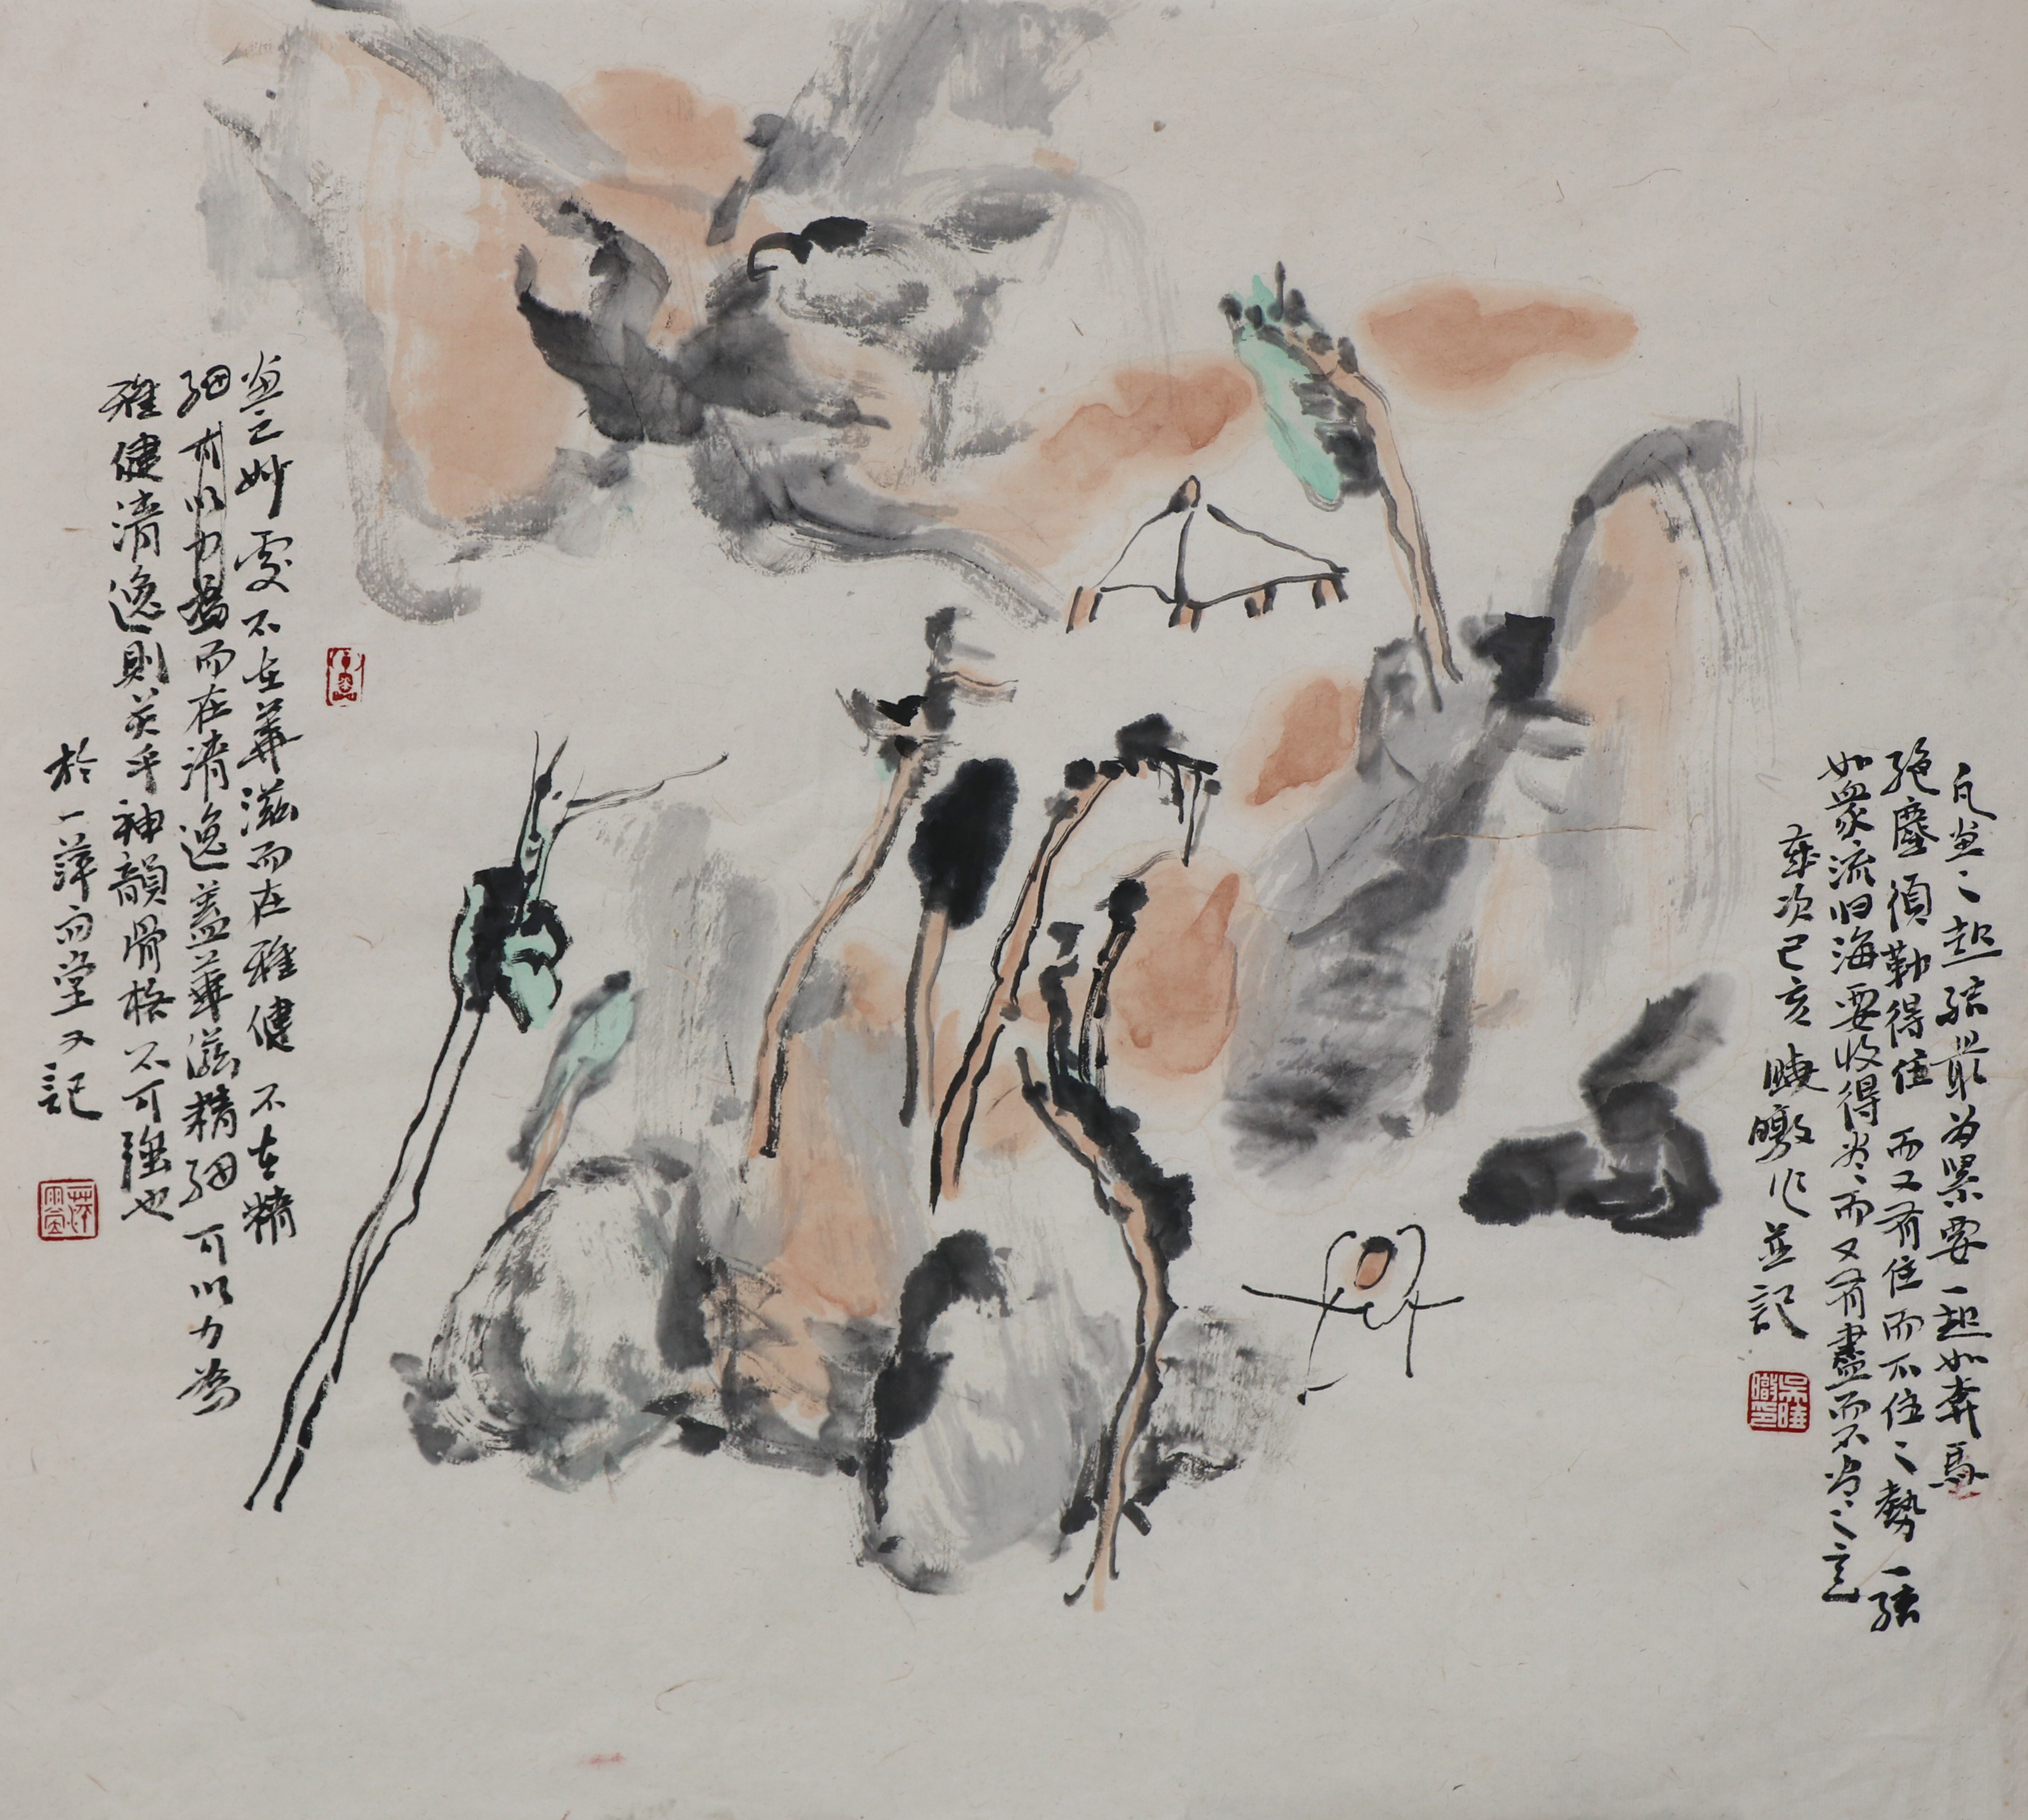 凡画之起结最为累要一起如奔馬
絶塵須勒得住而又有住而不住之勢一结
如衆流归海要收得尽而又有盡而不尽之意
歲次己亥 曉暾作並記
吴曉暾印
画之妙處不在華滋而在雅健不在精
细而在清逸盖華滋精细可以力為
雅健清逸則关乎神韻骨格不可強也
於一萍雨堂又記